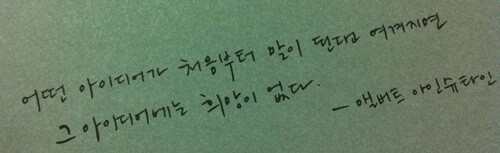 어떤 아이디어가 처음부터 말이 된다고 여겨지면
그 아이디어에는 희망이 없다.
— 앨버트 아인슈타인